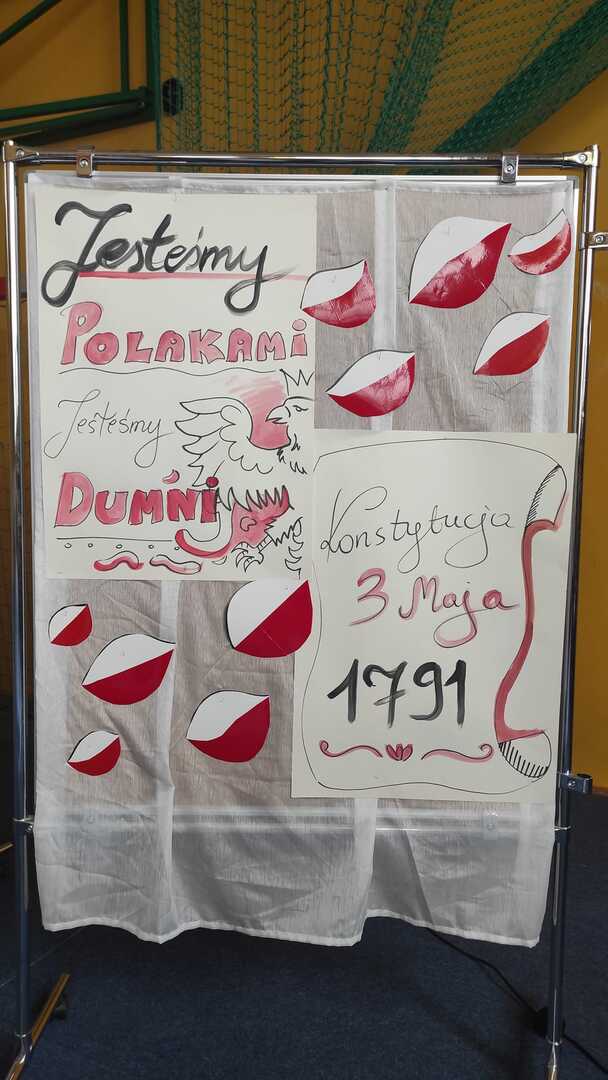 Jesteśmy
POLAKAMI
Jesteśmy
DUMNI
Konstytucja
3 Maja
1791